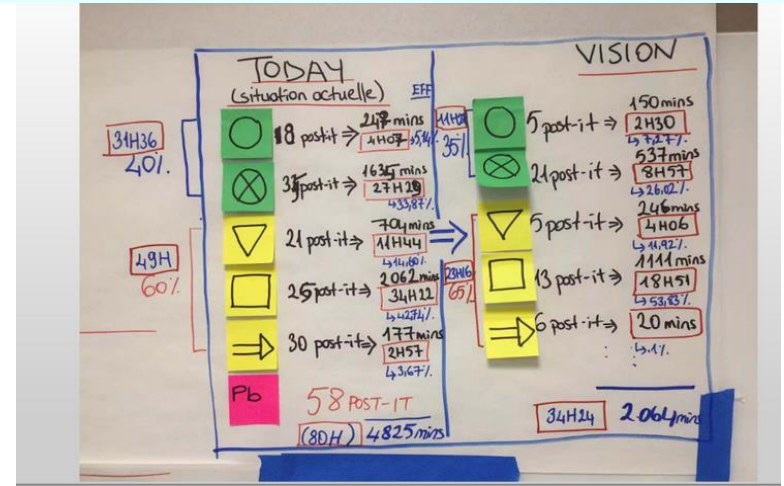 TODAY
(situation actuelle)
EFF
18 post-it ⇒ 247 mins
4H07
↳5,14%
31H36
40%
post-it ⇒ 1635 mins
27H29
↳33,87%
21 post-it ⇒ 704 mins
11H44
↳14,60%
49H
60%
25 post-it ⇒ 2062 mins
34H22
↳42,74%
30 post-it ⇒ 177 mins
2H57
↳3,67%
Pb
58 POST-IT
(80H) 4825 mins
VISION
35%
5 post-it ⇒ 150 mins
2H30
↳7,27%
21 post-it ⇒ 537 mins
8H57
↳26,02%
5 post-it ⇒ 246 mins
4H06
↳11,92%
23H16
65%
13 post-it ⇒ 1111 mins
18H51
↳53,83%
6 post-it ⇒ 20 mins
↳1%
34H24 2064 mins